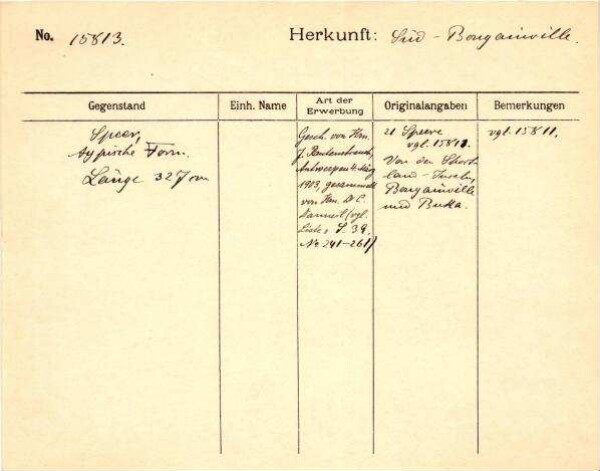 No. 15813.
Herkunft: Süd-Bougainville.
Gegenstand
Einh. Name
Art der
Erwerbung
Originalangaben
Bemerkungen
Speer,
typische Form.
Länge 327 cm
Gesch. von Hrn.
J.
Antwerpen 4. März
1903, gesammelt
von Hrn. D. C.
(vgl.
Liste S. 39.
No 241-261)
21 Speere
vgl. 15811.
Von den Short-
land-Inseln,
Bougainville
und Buka.
vgl. 15811.